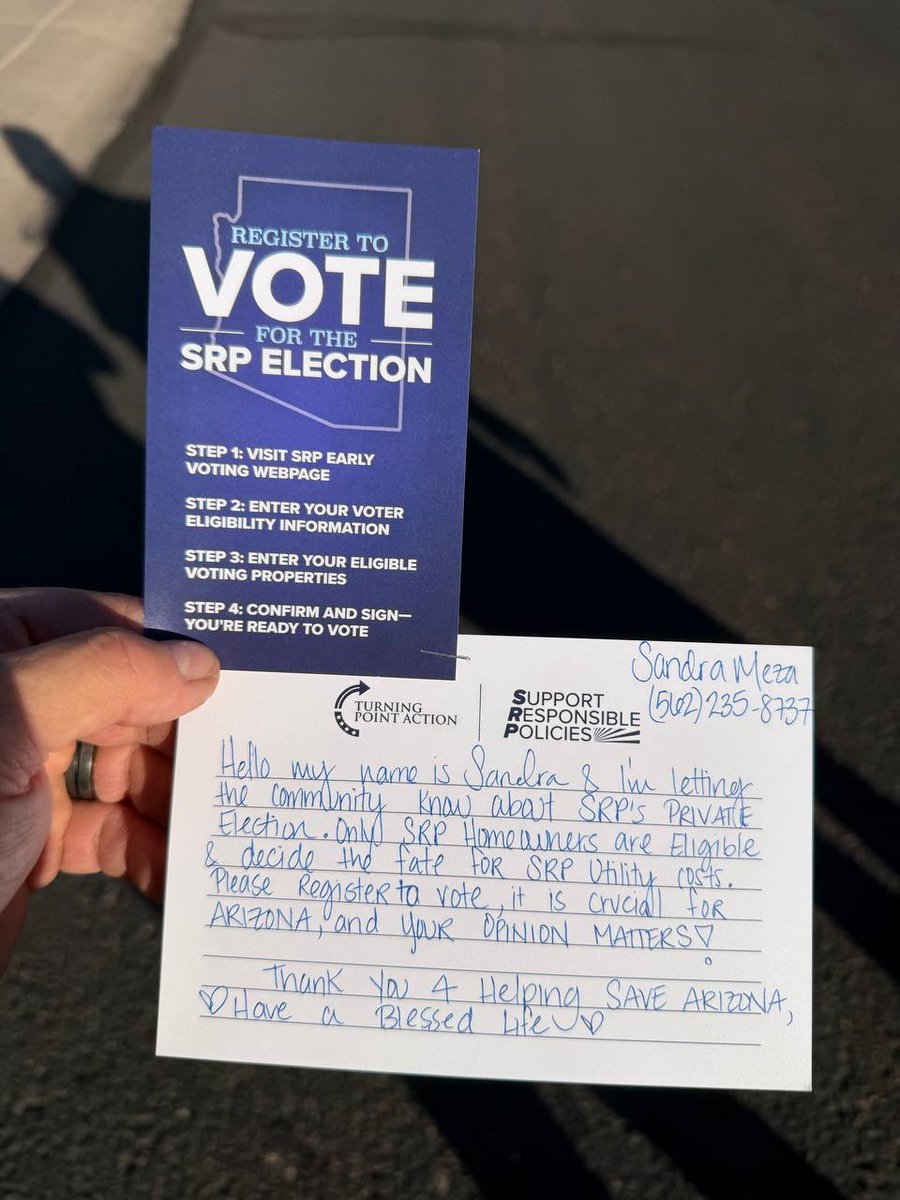 REGISTER TO
VOTE
FOR THE
SRP ELECTION
STEP 1: VISIT SRP EARLY
VOTING WEBPAGE
STEP 2: ENTER YOUR VOTER
ELIGIBILITY INFORMATION
STEP 3: ENTER YOUR ELIGIBLE
VOTING PROPERTIES
STEP 4: CONFIRM AND SIGN—
YOU'RE READY TO VOTE
Sandra Meza
(562)235-8737
TURNING
POINT ACTION
SUPPORT
RESPONSIBLE
POLICIES
Hello my name is Sandra & I'm letting
the community know about SRP's PRIVATE
Election. Only SRP Homeowners are Eligible
& decide the fate for SRP Utility costs.
Please Register to vote, it is crucial for
ARIZONA, and YOUR OPINION MATTERS!
Thank You 4 Helping SAVE ARIZONA,
Have a Blessed Life